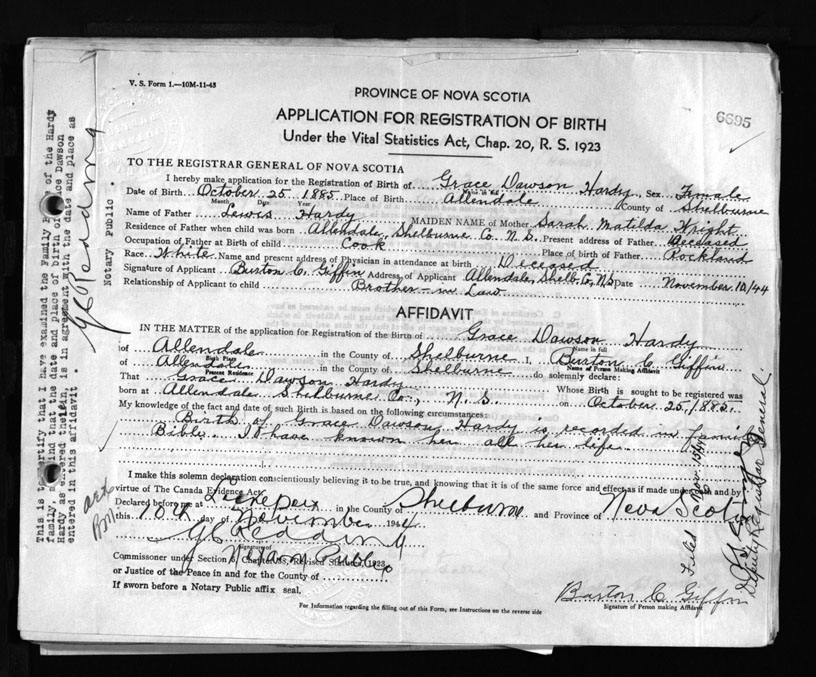 V. S. Form 1.—10M-11-43
PROVINCE OF NOVA SCOTIA
APPLICATION FOR REGISTRATION OF BIRTH
Under the Vital Statistics Act, Chap. 20, R. S. 1923
6695
TO THE REGISTRAR GENERAL OF NOVA SCOTIA
I hereby make application for the Registration of Birth of Grace Dawson Hardy Sex Female
Date of Birth October 25 1885 Place of Birth Allendale County of Shelburne
Month Day Year
Name of Father Lewis Hardy MAIDEN NAME of Mother Sarah Matilda Wright
Residence of Father when child was born Allendale, Shelburne Co N.S. Present address of Father Deceased
Occupation of Father at Birth of child Cook Place of birth of Father Rockland
Race White Name and present address of Physician in attendance at birth Deceased
Signature of Applicant Burton C. Giffin Address of Applicant Allendale, Shelb. Co, N.S Date November 10/44
Relationship of Applicant to child Brother-in Law
AFFIDAVIT
IN THE MATTER of the application for Registration of the Birth of Grace Dawson Hardy
Name in full
of Allendale in the County of Shelburne I, Burton C Giffin
Birth Place Name of Person Making Affidavit
of Allendale in the County of Shelburne do solemnly declare:
Person Residence
That Grace Dawson Hardy Whose Birth is sought to be registered was
born at Allendale Shelburne Co., N. S. on October 25, 1885.
My knowledge of the fact and date of such Birth is based on the following circumstances:
Birth of Grace Dawson Hardy is recorded in family
Bible. I have known her all her life.
I make this solemn declaration conscientiously believing it to be true, and knowing that it is of the same force and effect as if made under oath and by
virtue of The Canada Evidence Act.
Declared before me at in the County of Shelburne and Province of Nova Scotia
this 10th day of November 1944
G C Redding
Signature of
Notary Public
Commissioner under Section 6, Chapter 38, Revised Statutes, 1923
or Justice of the Peace in and for the County of
If sworn before a Notary Public affix seal.
Burton C Giffin
Signature of Person making Affidavit
For Information regarding the filling out of this Form, see Instructions on the reverse side
This is to certify that I have examined the Family of the Hardy
family, and find that the date and place of birth of Grace Dawson
Hardy as entered therein, is in agreement with the date and place as
entered in this affidavit.
G C Redding
Notary Public.
Filed Nov 15/44
Deputy Registrar General.